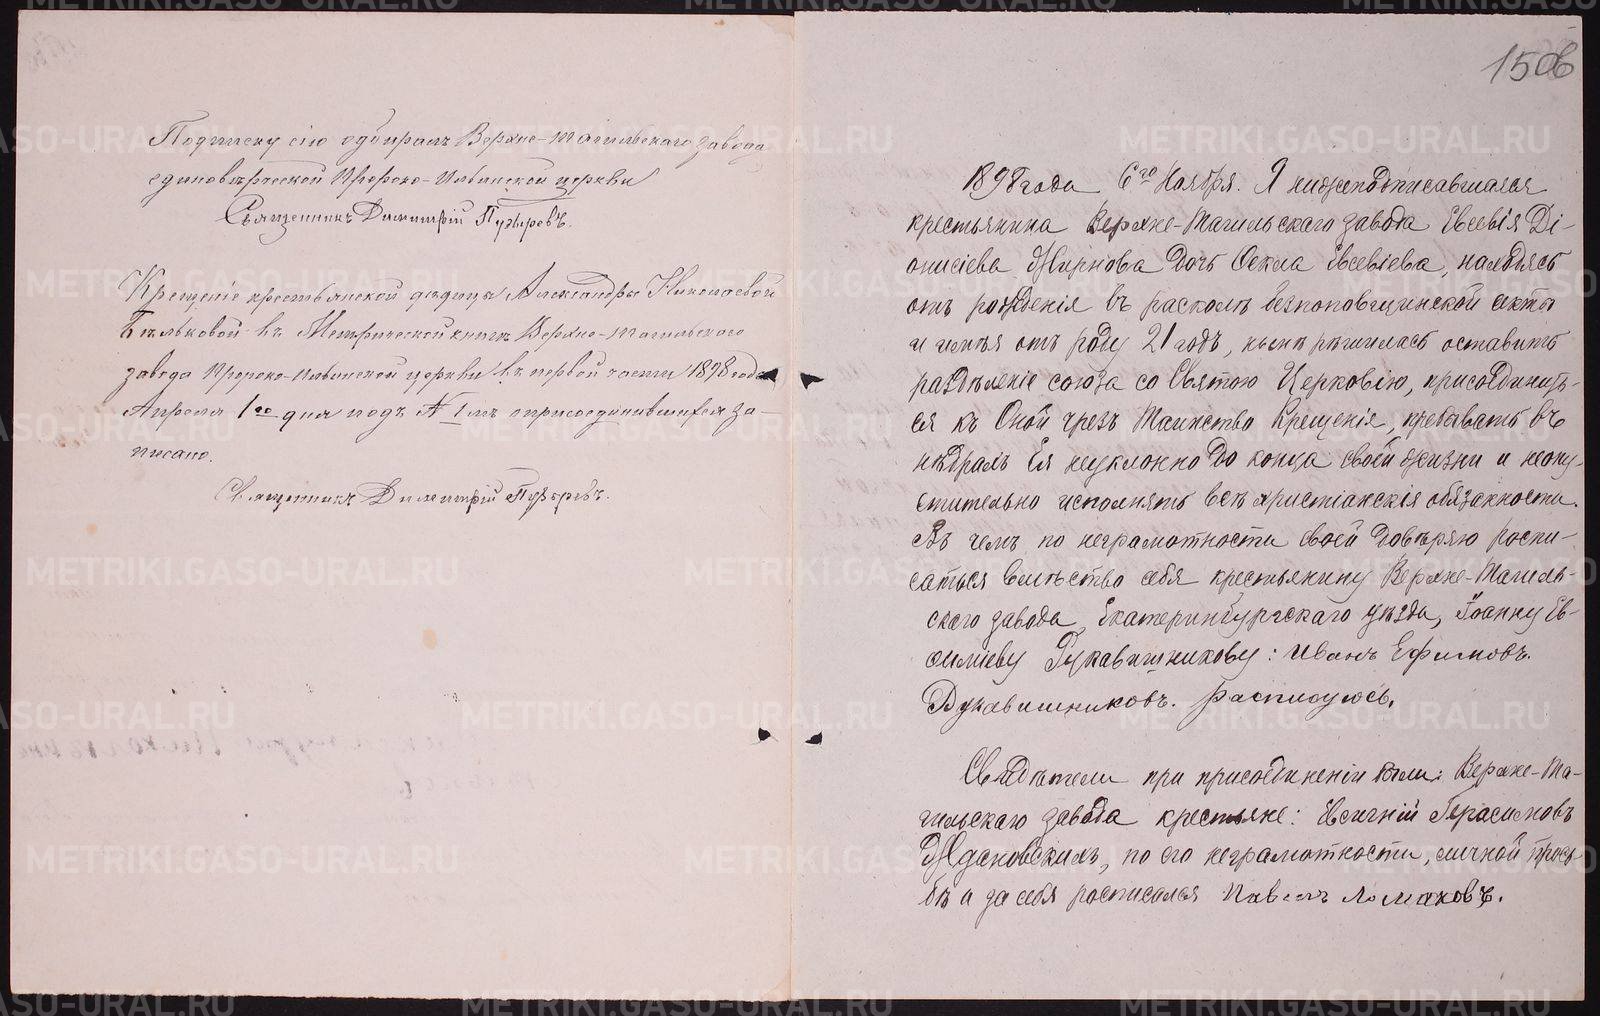 Подписку сію отбиралъ Верхне-Тагильскаго завода
единовѣрческой Пророко-Ильинской церкви
Священникъ Димитрій Пузыревъ.
Крещеніе крестьянской дѣвицы Александры Николаевой
Бѣльковой въ Метрической книгѣ Верхне-Тагильскаго
завода Пророко-Ильинской церкви въ первой части 1898 года
Апрѣля 1го дня подъ № 1мъ о присоединившихся за-
писано.
Священникъ Димитрій Пузыревъ.
150б
1898 года 6го Ноября. Я нижеподписавшаяся
крестьянина Верхне-Тагильскаго завода Евсевія Ді-
онисіева Жирнова дочь Ѳекла Евсевіева, находясь
отъ рожденія въ расколѣ безпоповщинской секты
и имѣя отъ роду 21 годъ, нынѣ рѣшилась оставить
раздѣленіе союза со Святою Церковію, присоединить-
ся къ Оной чрезъ Таинство Крещенія, пребывать въ
нѣдрахъ Ея неуклонно до конца своей жизни и неопу-
стительно исполнять всѣ христіанскія обязанности.
Въ чемъ по неграмотности своей довѣряю роспи-
саться вмѣсто себя крестьянину Верхне-Тагиль-
скаго завода, Екатеринбургскаго уѣзда, Іоанну Ев-
ѳиміеву Рукавишникову: Иванъ Ефимовъ.
Рукавишниковъ. росписуюсь.
Свидѣтели при присоединеніи были: Верхне-Та-
гильскаго завода крестьяне: Евсигній Герасимовъ
Ждановскихъ, по его неграмотности, личной прось-
бѣ и за себя росписался Павелъ Ломаховъ.
METRIKI.GASO-URAL.RU